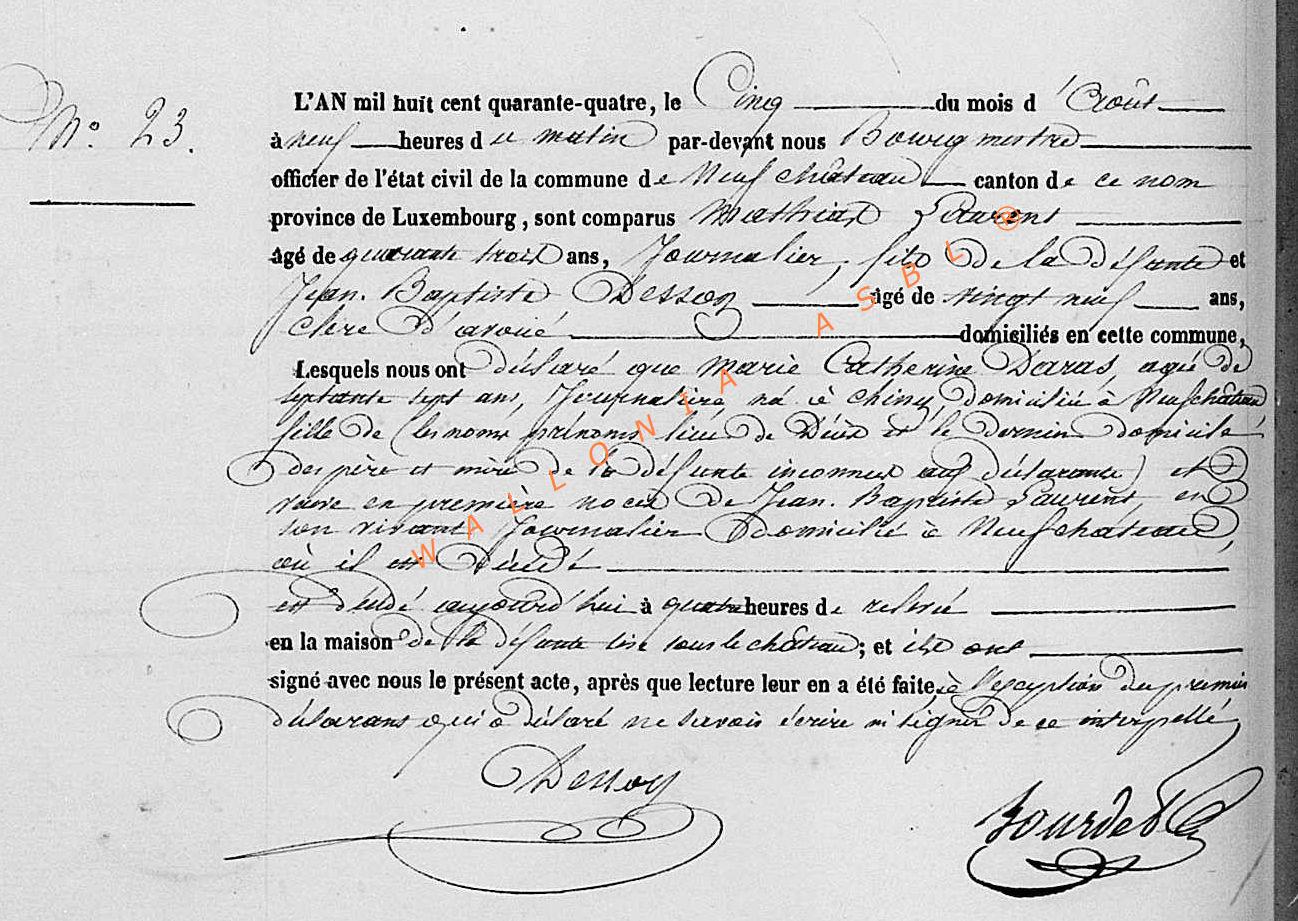 N° 23.
L'AN mil huit cent quarante-quatre, le Cinq du mois d'Août
à neuf heures du matin par-devant nous Bourgmestre
officier de l'état civil de la commune de Neufchâteau canton de ce nom
province de Luxembourg, sont comparus Mathias Laurent
âgé de quarante trois ans, Journalier, fils de la défunte et
Jean-Baptiste Dessoy âgé de vingt neuf ans,
clerc d'avoué domiciliés en cette commune,
Lesquels nous ont déclaré que Marie Catherine Daras, agée de
septante sept ans, Journalière né à Chiny, domiciliée à Neufchâteau
fille de (les noms prénoms lieu de Décès et le dernier domicile
des père et mère de la défunte inconnus aux déclarants) et
veuve en première noces de Jean-Baptiste Laurent en
son vivant Journalier domicilié à Neufchâteau,
où il est Décédé
est décédé aujourd'hui à quatre heures de relevée
en la maison de la défunte sise sous le château; et ils ont
signé avec nous le présent acte, après que lecture leur en a été faite, à l'exception du premier
déclarans qui a déclaré ne savoir écrire ni signer de ce interpellé
Dessoy
Bourdet
WALLONIA ASBL ®